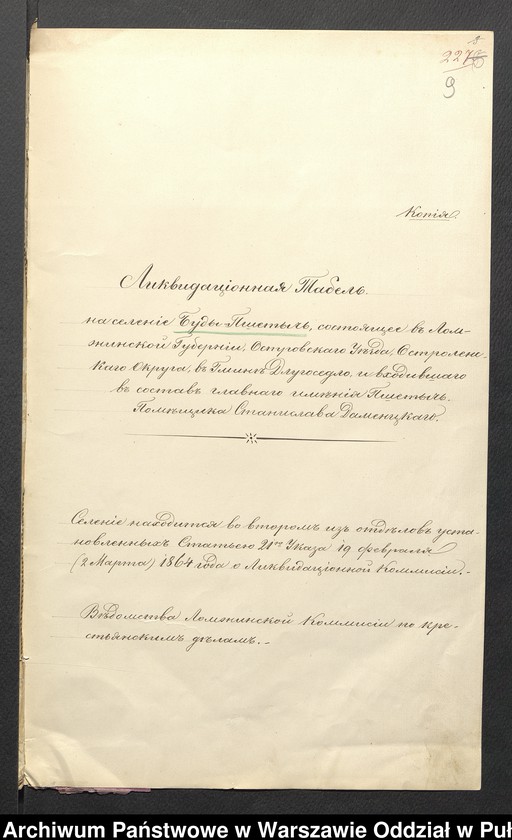 8
227
9
Копія.
Ликвидаціонная Табель.
на селеніе Буды-Пшетыль, состоящее въ Лом-
жинской Губерніи, Островскаго Уѣзда, Остролен-
каго Округа, въ Гминѣ Длугоседло, и входившаго
въ составъ главнаго имѣнія Пшетычь.
Помѣщика Станислава Даменцкаго.
Селеніе находится во второмъ изъ отдѣловъ уста-
новленныхъ Статьею 21ю Указа 19 февраля
(2 Марта) 1864 года о Ликвидаціонной Коммисіи.-
Вѣдомства Ломжинской Коммисіи по кре-
стьянскимъ дѣламъ.-
Archiwum Państwowe w Warszawie Oddział w Puł